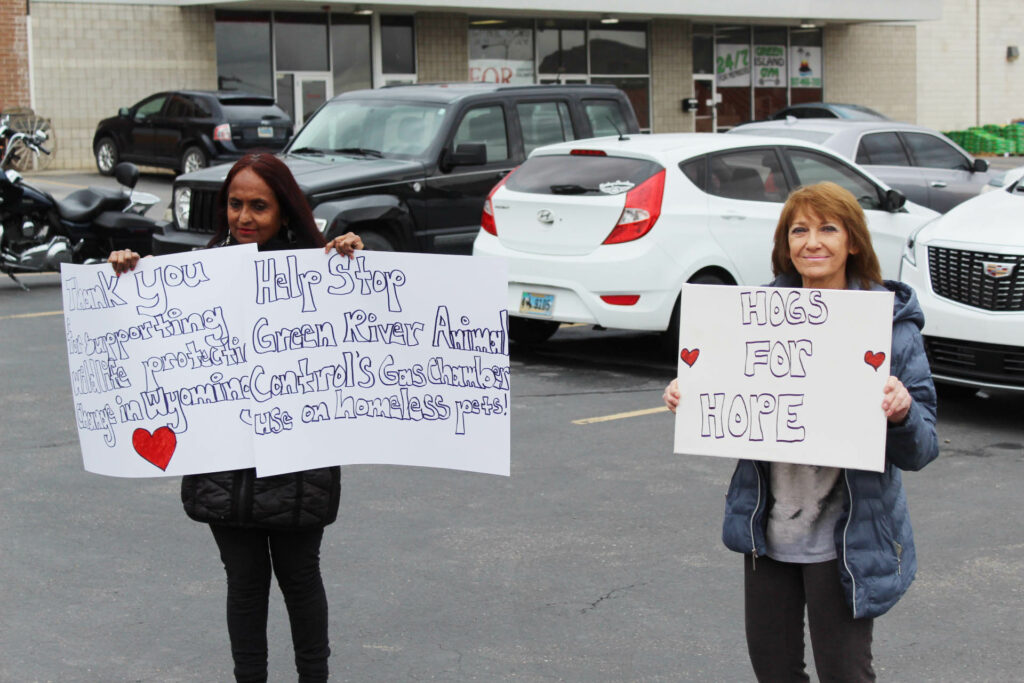 Thank you
for supporting
wildlife protecti
Change in Wyoming
Help Stop
Green River Animal
Control's Gas Chamber
use on homeless pets!
HOGS
FOR
HOPE
FOR
24/7
GREEN
ISLAND
GYM